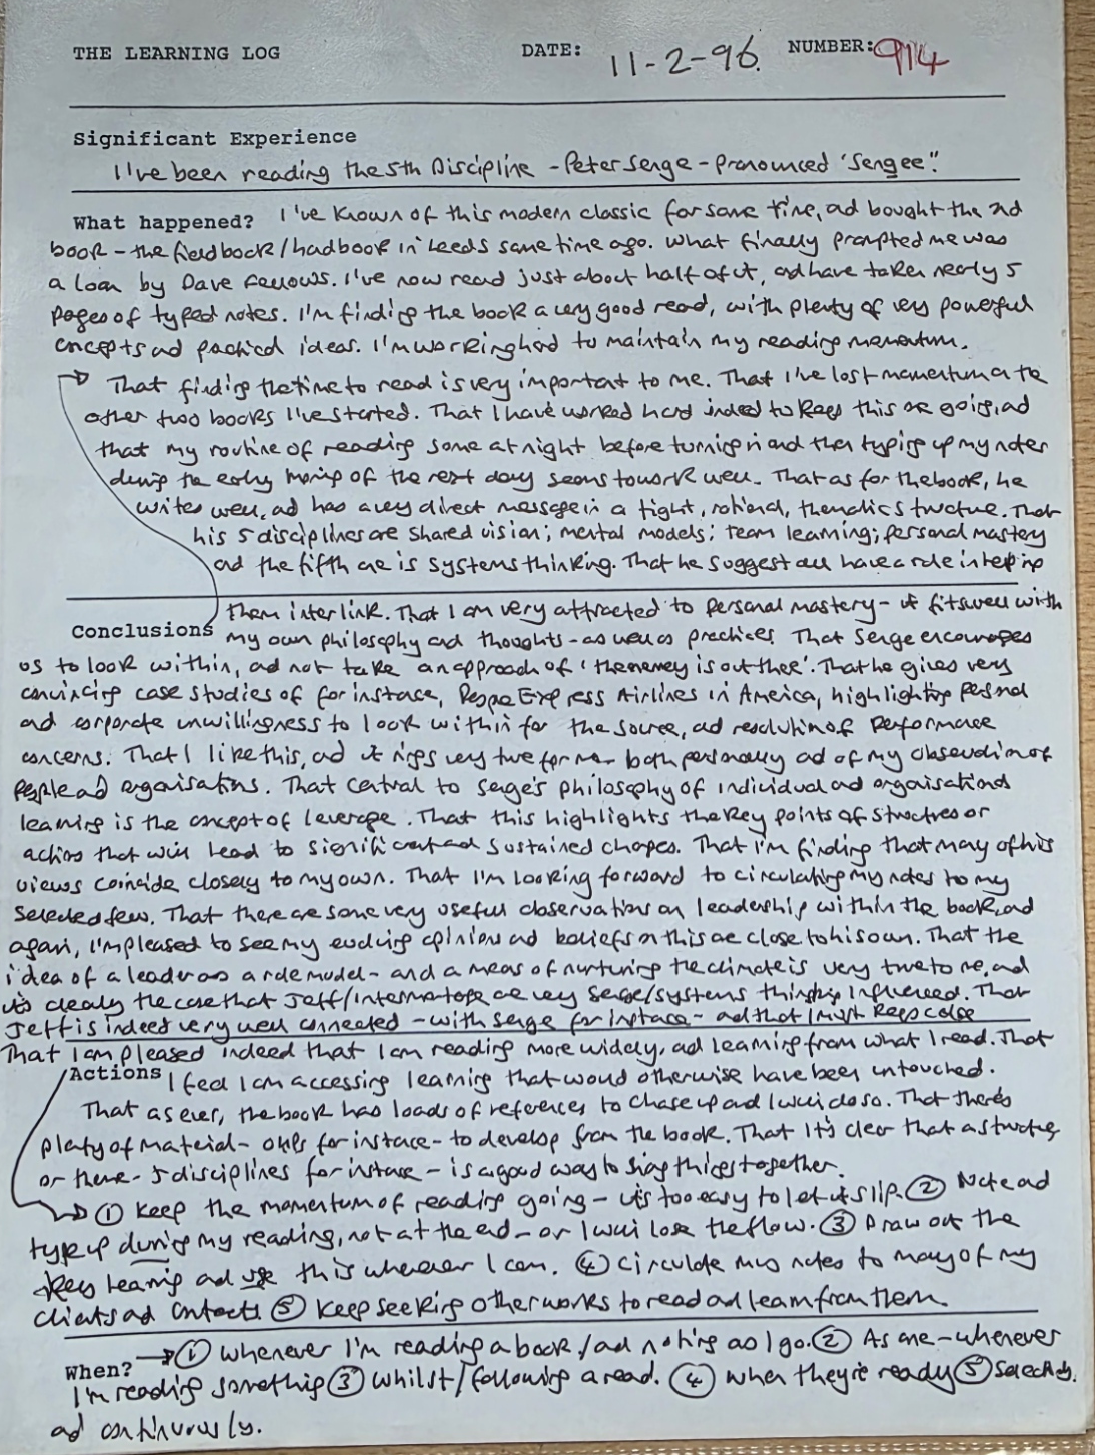 THE LEARNING LOG DATE: 11-2-96. NUMBER: 914
Significant Experience
I've been reading the 5th Discipline - Peter Senge - pronounced 'Sengee'!
What happened? I've known of this modern classic for some time, ad bought the 2nd
book - the fieldbook/hadbook in Leeds some time ago. What finally prompted me was
a loan by Dave Fellows. I've now read just about half of it, ad have taken nearly 5
pages of typed notes. I'm finding the book a very good read, with plenty of very powerful
concepts ad practical ideas. I'm working hard to maintain my reading momentum.
That finding the time to read is very important to me. That I've lost momentum on the
other two books I've started. That I have worked hard indeed to keep this one going, ad
that my routine of reading some at night before turning in and then typing up my notes
during the early morning of the next day seems to work well. That as for the book, he
writes well, ad has a very direct message in a tight, rational, thematic structure. That
his 5 disciplines are shared vision; mental models; team learning; personal mastery
ad the fifth one is systems thinking. That he suggest all have a role in helping
them interlink. That I am very attracted to personal mastery - it fits well with
Conclusions my own philosophy and thoughts - as well as practices. That Senge encourages
us to look within, ad not take an approach of 'the enemy is out there'. That he gives very
convincing case studies of for instance, People Express Airlines in America, highlighting personal
and corporate unwillingness to look within for the source, ad resolution of performance
concerns. That I like this, ad it rings very true for me - both personally ad of my observation of
people ad organisations. That central to Senge's philosophy of individual ad organisational
learning is the concept of leverage. That this highlights the key points of structures or
actions that will lead to significant ad sustained changes. That I'm finding that many of his
views coincide closely to my own. That I'm looking forward to circulating my notes to my
selected few. That there are some very useful observations on leadership within the book, ad
again, I'm pleased to see my evolving opinions ad beliefs on this are close to his own. That the
idea of a leader as a role model - and a means of nurturing the climate is very true to me, ad
it's clearly the case that Jeff/ are very Senge/systems thinking influenced. That
Jeff is indeed very well connected - with Senge for instance - ad that I must keep close
That I am pleased indeed that I am reading more widely, ad learning from what I read. That
Actions I feel I am accessing learning that would otherwise have been untouched.
That as ever, the book has loads of references to chase up and I will do so. That there's
plenty of material - OHPs for instance - to develop from the book. That it's clear that a structure
or theme - 5 disciplines for instance - is a good way to string things together.
① Keep the momentum of reading going - it's too easy to let it slip. ② Note ad
type up during my reading, not at the end - or I will lose the flow. ③ Draw out the
key learning ad use this wherever I can. ④ Circulate my notes to many of my
clients ad contacts. ⑤ Keep seeking other works to read ad learn from them.
When? ① Whenever I'm reading a book/ad noting as I go. ② As one - whenever
I'm reading something ③ Whilst/following a read. ④ When they're ready ⑤ Selectively.
ad continuously.